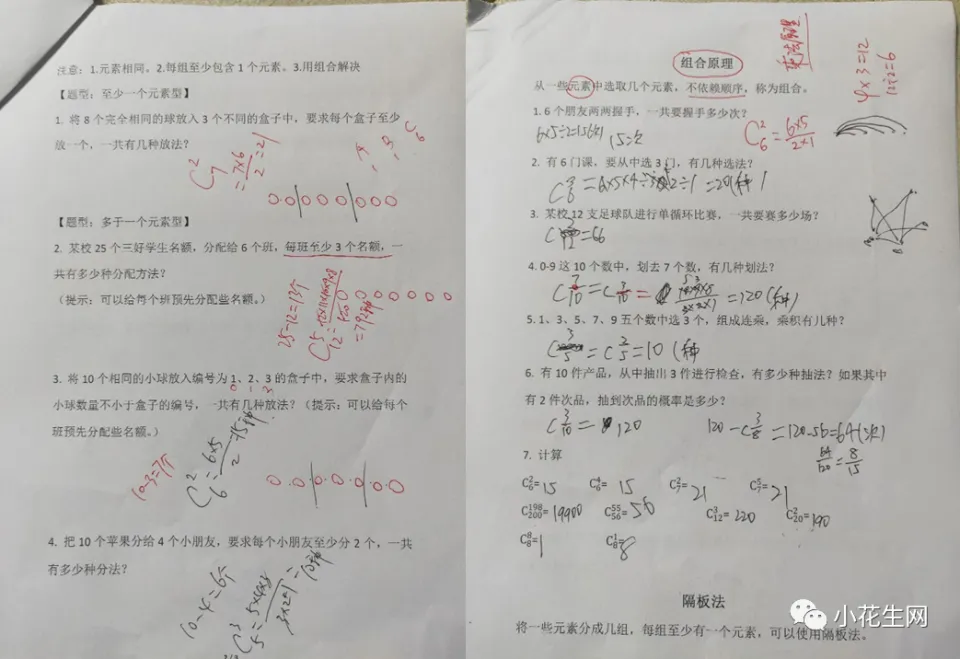 注意：1.元素相同、2.每组至少包含 1 个元素、3.用组合解决
【题型：至少一个元素型】
1. 将 8 个完全相同的球放入 3 个不同的盒子中，要求每个盒子至少
放一个，一共有几种放法？
C₇² = 7×6/2 = 21
【题型：多于一个元素型】
2. 某校 25 个三好学生名额，分配给 6 个班，每班至少 3 个名额，一
共有多少种分配方法？
（提示：可以给每个班预先分配些名额。）
25-12=13个
3. 将 10 个相同的小球放入编号为 1、2、3 的盒子中，要求盒子内的
小球数量不小于盒子的编号，一共有几种放法？（提示：可以给每个
班预先分配些名额。）
10-3=7个
C₆² = 6×5/2 = 15种
4. 把 10 个苹果分给 4 个小朋友，要求每个小朋友至少分 2 个，一共
有多少种分法？
10-4=6个
C₅³ = 5×4×3/3×2×1 = 10种
乘法原理
4×3=12
12÷2=6
组合原理
从一些元素中选取几个元素，不依赖顺序，称为组合。
1. 6 个朋友两两握手，一共要握手多少次？
6×5÷2=15(次)
C₆² = 6×5/2×1
2. 有 6 门课，要从中选 3 门，有几种选法？
=20(种)
3. 某校 12 支足球队进行单循环比赛，一共要赛多少场？
=66
4. 0-9 这 10 个数中，划去 7 个数，有几种划法？
C₁₀⁷ = C₁₀³ = 120(种)
5. 1、3、5、7、9 五个数中选 3 个，组成连乘，乘积有几种？
C₅³ = C₅² = 10(种
6. 有 10 件产品，从中抽出 3 件进行检查，有多少种抽法？如果其中
有 2 件次品，抽到次品的概率是多少？
C₁₀³ = 120
120-C₈³ = 120-56=64(次)
64/120 = 8/15
7. 计算
C₆²= 15 C₆⁴= 15 C₇²= 21 C₇⁵= 21
C₂₀₀¹⁹⁸= 19900 C₅₆⁵⁵= 56 C₁₂³= 220 C₂₀²= 190
C₈⁸= 1 C₈¹= 8
隔板法
将一些元素分成几组，每组至少有一个元素，可以使用隔板法。
小花生网